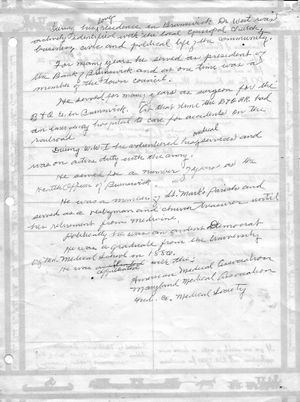 long
During his residence in Brunswick Dr West was
actively identified with the local Episcopal Church,
business, civic and political life of the community.
For many years he served as president of
the Bank of Brunswick and at one time was a
member of the town council.
He served for many years as surgeon for the
B & O in Brunswick. At that time the B & O RR had
an emergency hospital to care for accidents on the
railroad.
medical
During WWI he volunteered his services and
was on active duty with the army.
He served for a number of years as the
Health Officer of Brunswick.
He was a member of St. Mark's Parish and
served as a vestryman and church treasurer until
his retirement from medicine.
Politically he was an ardent Democrat
He was a graduate from the University
of Md. Medical School in 1886.
He was with the:
affiliated
American Medical Association
Maryland Medical Association
Fred. Co. Medical Society